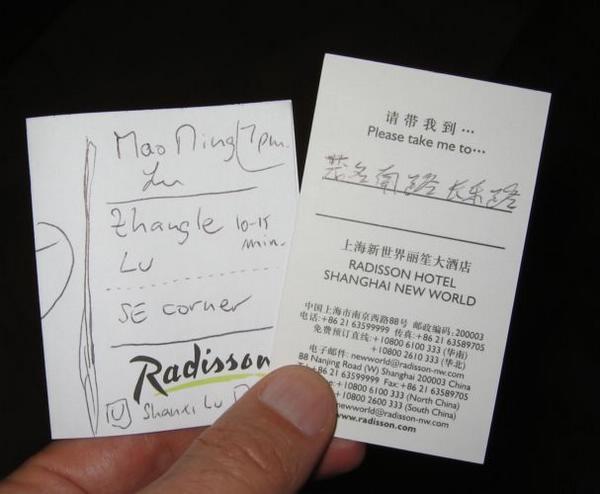 Mao Ming 7pm.
Lu
Zhangle 10-15
min.
LU
SE corner
Radisson
U Shanxi Lu
请带我到…
Please take me to…
茂名南路 长乐路
上海新世界丽笙大酒店
RADISSON HOTEL
SHANGHAI NEW WORLD
中国上海市南京西路88号 邮政编码:200003
电话:+86 21 63599999 传真:+86 21 63589705
免费预订直线:+10800 6100 333 (华南)
+10800 2610 333 (华北)
电子邮件: newworld@radisson-nw.com
88 Nanjing Road (W) Shanghai 200003 China
+86 21 63599999 Fax:+86 21 63589705
+10800 6100 333 (North China)
+10800 2600 333 (South China)
newworld@radisson-nw.com
www.radisson.com